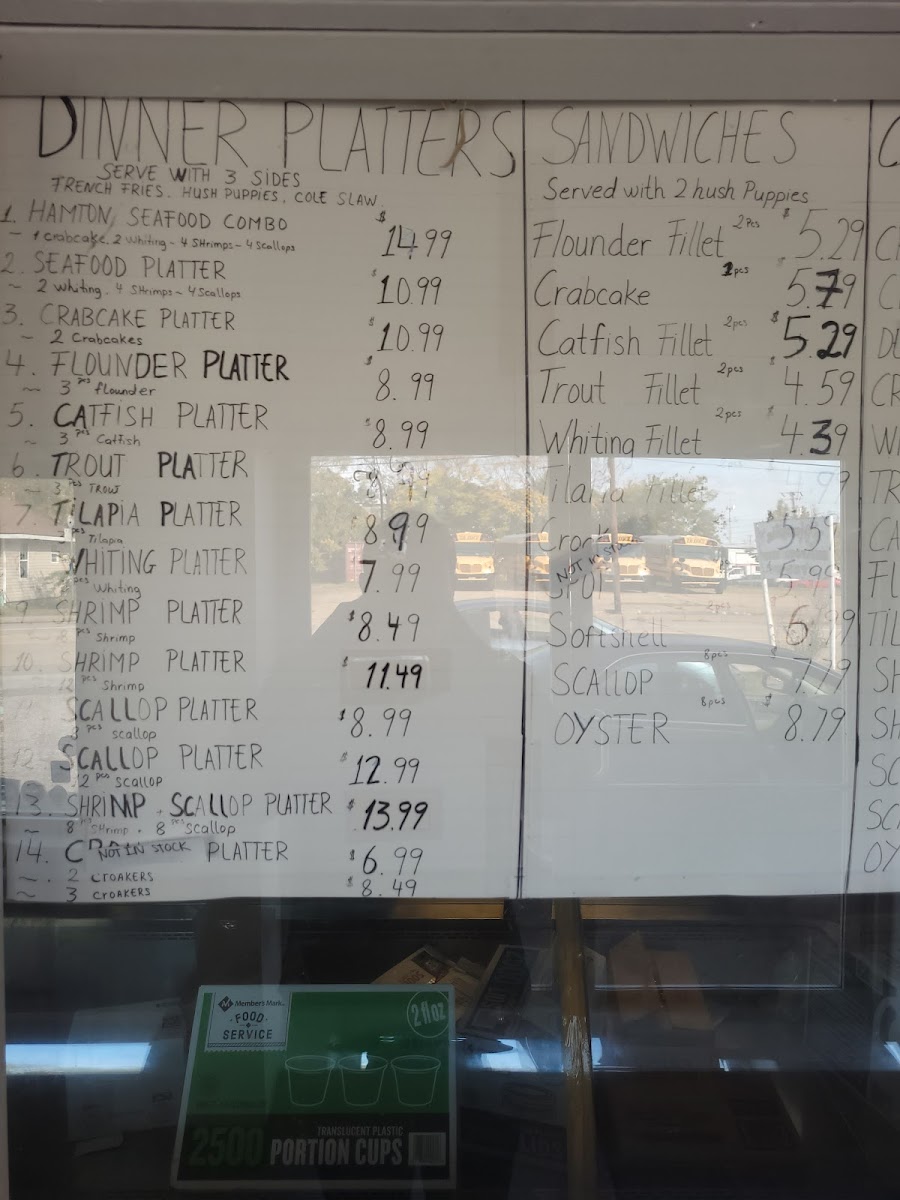 DINNER PLATTERS
SERVE WITH 3 SIDES
FRENCH FRIES. HUSH PUPPIES, COLE SLAW
1. HAMTON SEAFOOD COMBO $14.99
~ 1 crabcake. 2 Whiting ~ 4 SHrimps ~ 4 Scallops
2. SEAFOOD PLATTER $10.99
~ 2 Whiting. 4 SHrimps ~ 4 Scallops
3. CRABCAKE PLATTER $10.99
~ 2 Crabcakes
4. FLOUNDER PLATTER $8.99
~ 3 pcs flounder
5. CATFISH PLATTER $8.99
~ 3 pcs Catfish
6. TROUT PLATTER
~ 3 pcs TROUT
7 TILAPIA PLATTER 8.99
pcs Tilapia
WHITING PLATTER 7.99
pcs Whiting
9 SHRIMP PLATTER $8.49
~ 8 pcs Shrimp
10. SHRIMP PLATTER $11.49
12 pcs Shrimp
SCALLOP PLATTER $8.99
8 pcs scallop
12. SCALLOP PLATTER $12.99
12 pcs scallop
13. SHRIMP . SCALLOP PLATTER $13.99
~ 8 pcs SHrimp . 8 pcs scallop
14. NOT IN STOCK PLATTER $6.99
~ . 2 CROAKERS
~ 3 CROAKERS $8.49
SANDWICHES
Served with 2 hush Puppies
Flounder Fillet 2 Pcs $5.29
Crabcake 1 pcs 5.79
Catfish Fillet 2 pcs $5.29
Trout Fillet 2 pcs 4.59
Whiting Fillet 2 pcs $4.39
Tilapia Fillet 4.99
NOT IN STOCK
SPOT 5.99
Softshell 6.99
SCALLOP 8 pcs $7.79
OYSTER 8 pcs $8.79
Member's Mark
FOOD
SERVICE
2 fl oz
TRANSLUCENT PLASTIC
2500 PORTION CUPS